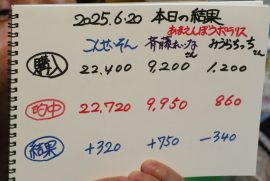 2025.6.20 本日の結果
あまえんぼうポラリス
こんせいそん 斉藤れいなさん みうらっちさん
購入 22,400 9,200 1,200
的中 22,720 9,950 860
結果 +320 +750 -340